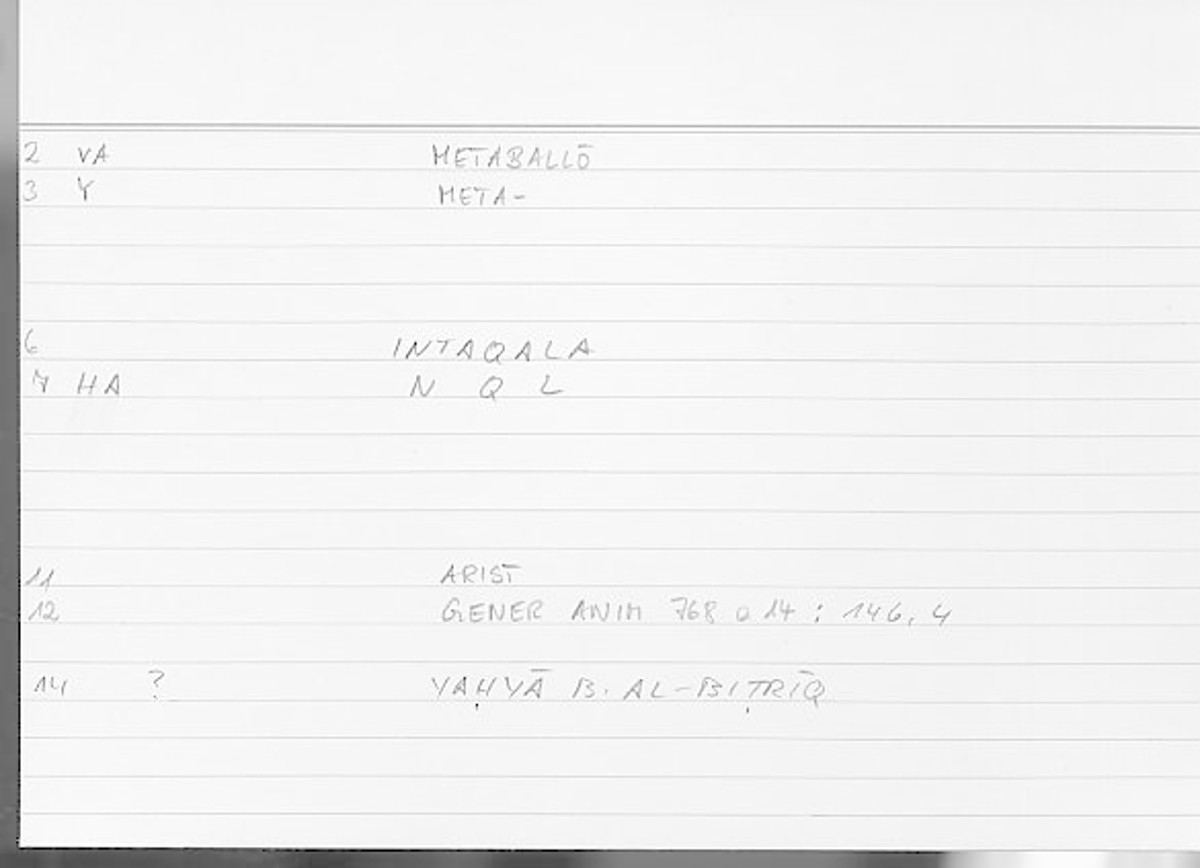 2 VA METABALLŌ
3 Y META-
6 INTAQALA
7 HA N Q L
11 ARIST
12 GENER ANIM 768 a 14 : 146, 4
14 ? YAḤYĀ B. AL-BIṬRĪQ